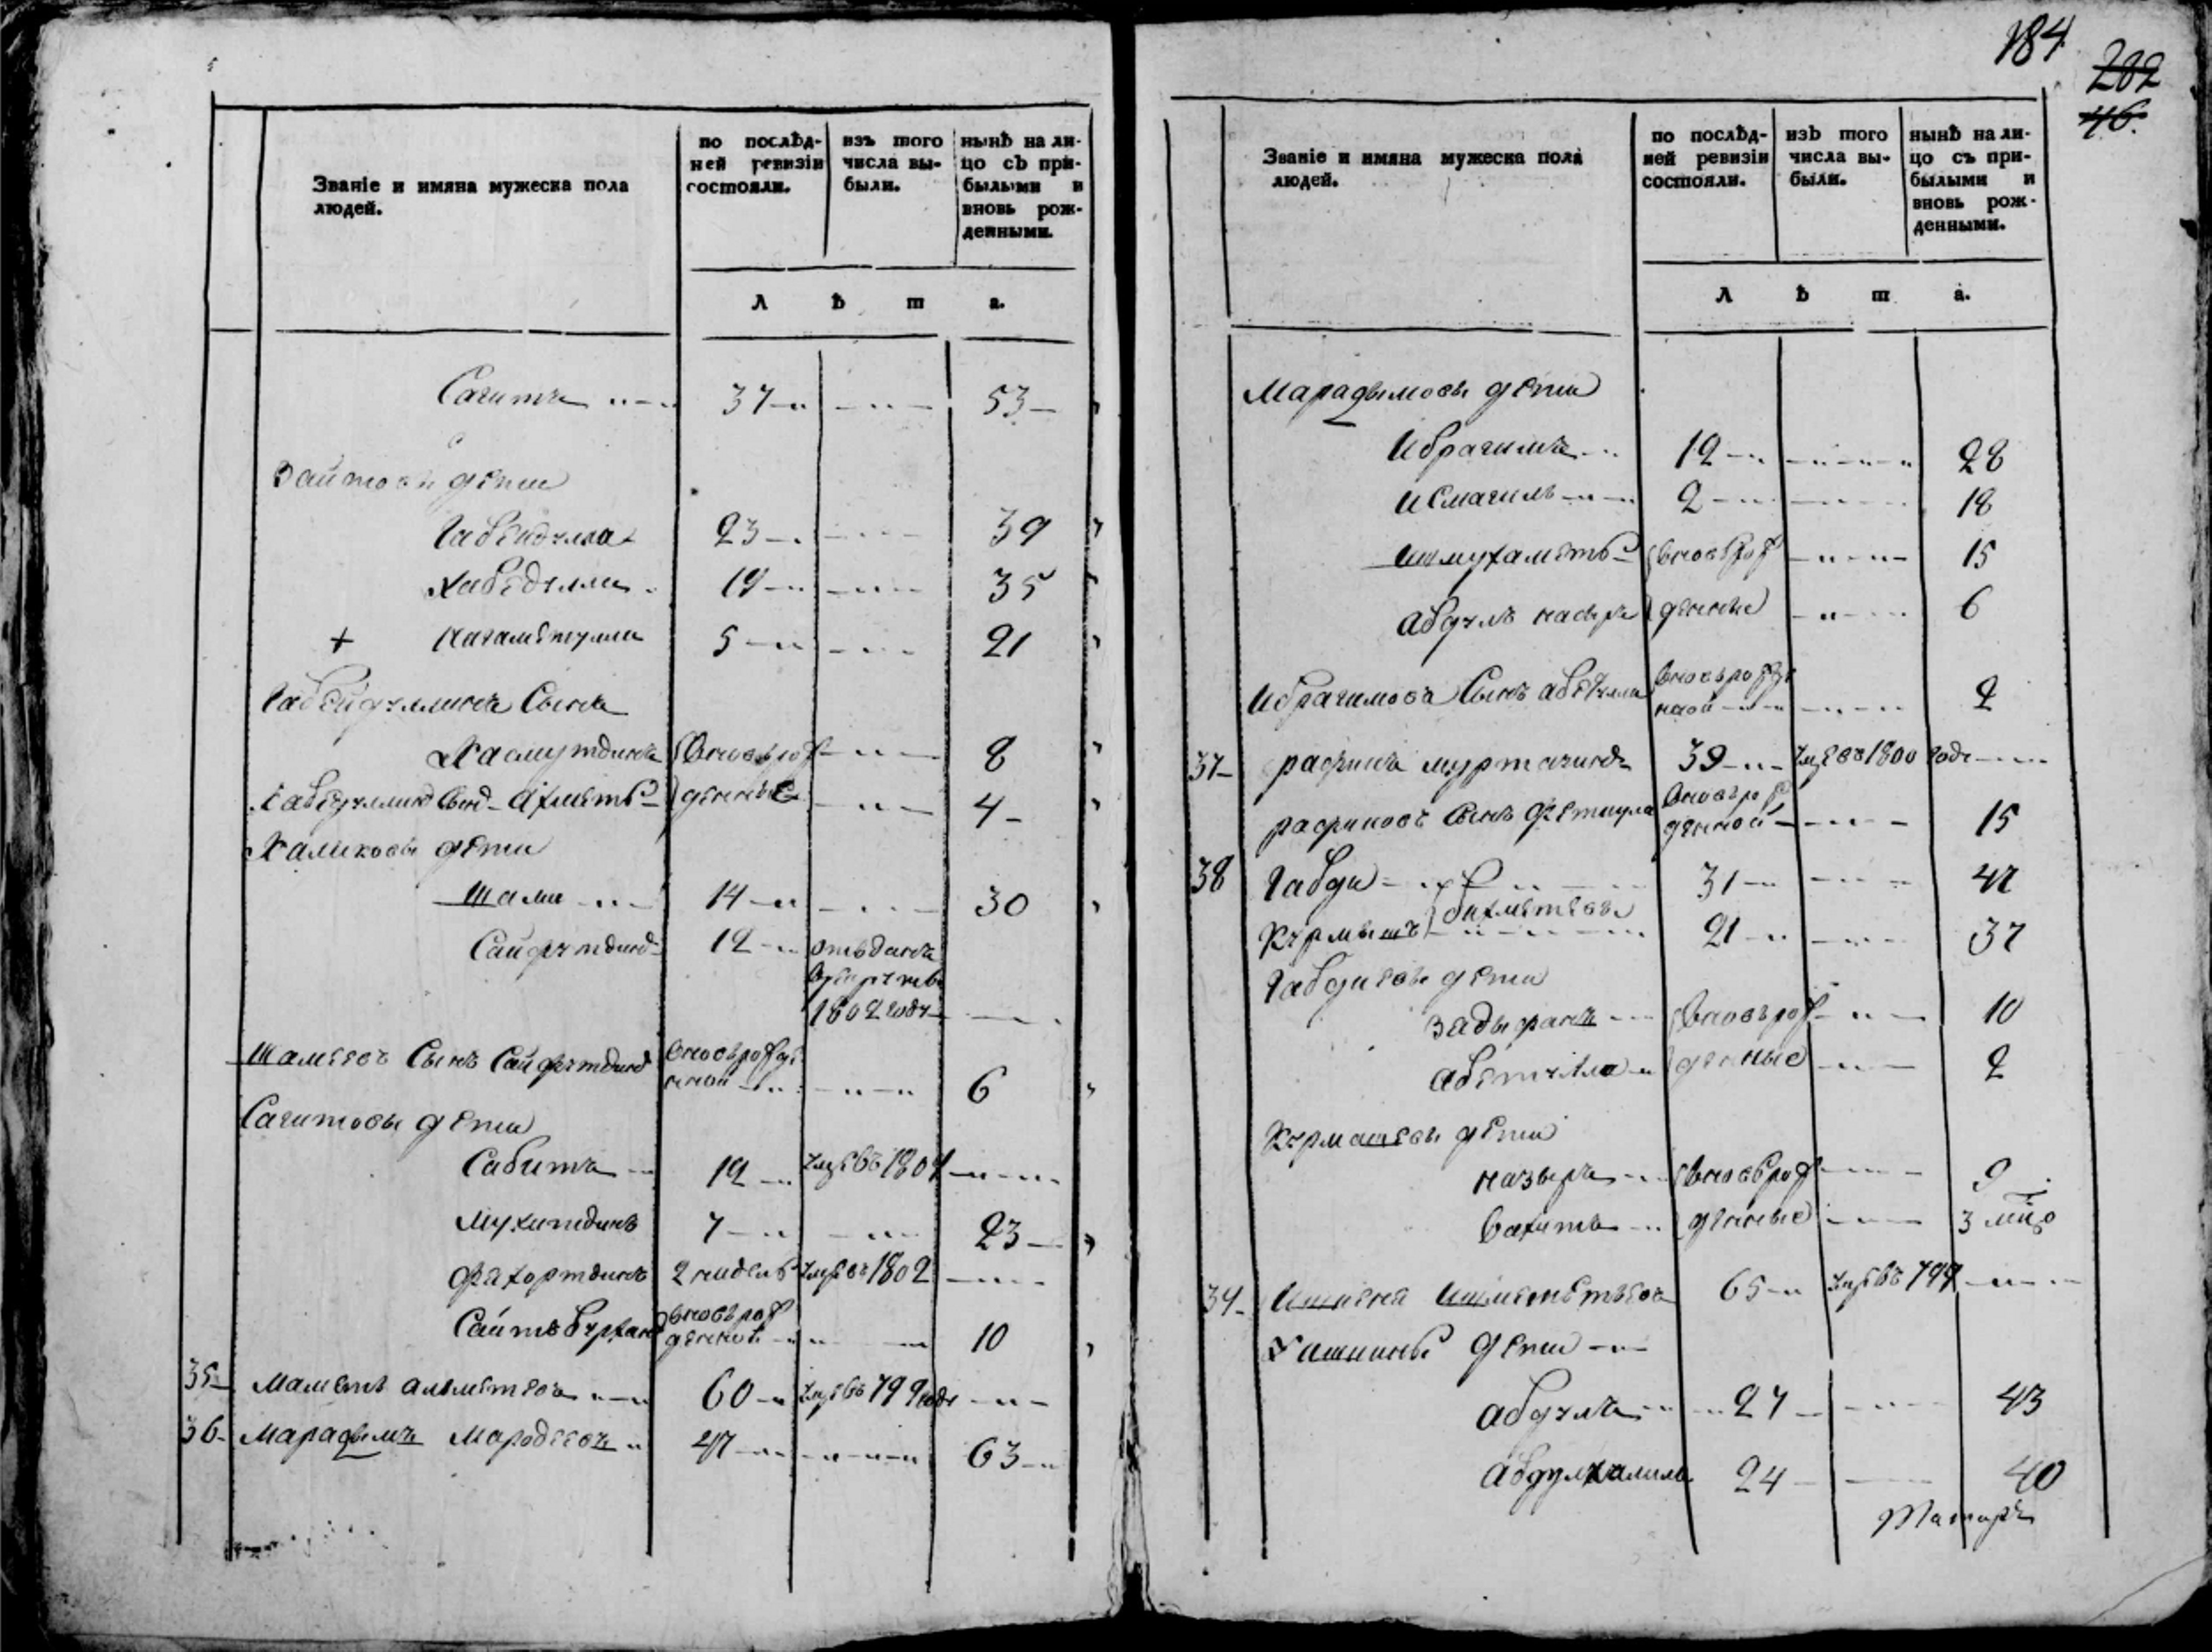 184
202
46.
Званіе и имяна мужеска пола людей.
по послѣдней ревизіи состояли.
изъ того числа выбыли.
нынѣ на лицо съ прибылыми и вновь рожденными.
Л ѣ т а.
Сагитъ 37 53
Заитовы дѣти
Габеидулла 23 39
Хабедулла 19 35
+ Нагаметулла 5 21
Габейдуллинъ Сынъ
Хасмутдинъ вновьрож 8
Хабедуллинъ Сынъ Ахметь денные 4
Халиковы дѣти
Шали 14 30
Сайфутдинъ 12 отъданъ
врекруты
1802 году
Шалеевъ Сынъ Сайфутдинъ вновьрожде
нной 6
Сагитовы дѣти
Сабитъ 12 умре въ 1804
Мухитдинъ 7 23
Фахортдинъ 2 недель умре въ 1802
Сайтъ Бурхан вновьрож
денной 10
35 Маметь алкметевъ 60 умре въ 799 году
36 Марадымъ Марадеевъ 47 63
Званіе и имяна мужеска пола людей.
по послѣдней ревизіи состояли.
изъ того числа выбыли.
нынѣ на лицо съ прибылыми и вновь рожденными.
Л ѣ т а.
Марадымовы дѣти
Ибрагимъ 12 28
Исмагиль 2 18
Ишмухаметь вновьрож 15
Абдулъ насыръ денные 6
Ибрагимовъ Сынъ абдулла вновьрожде
нной 2
37 рафикъ муртазинъ 39 умре въ 1800 году
рафиковъ Сынъ Фетхула вновьрож
денной 15
38 Габди 31 47
бикметевы
Курмышъ 21 37
Габдиевы дѣти
Задыханъ вновьрож 10
Абетулла денные 2
Курмашевы дѣти
назыръ вновьрож 9
Вахить денные 3 мцо
39 Ишкеня Ишметьевъ 65 умре въ 799
Ишкины дѣти
Абдулъ 27 43
Абдулхалиль 24 40
Татаръ